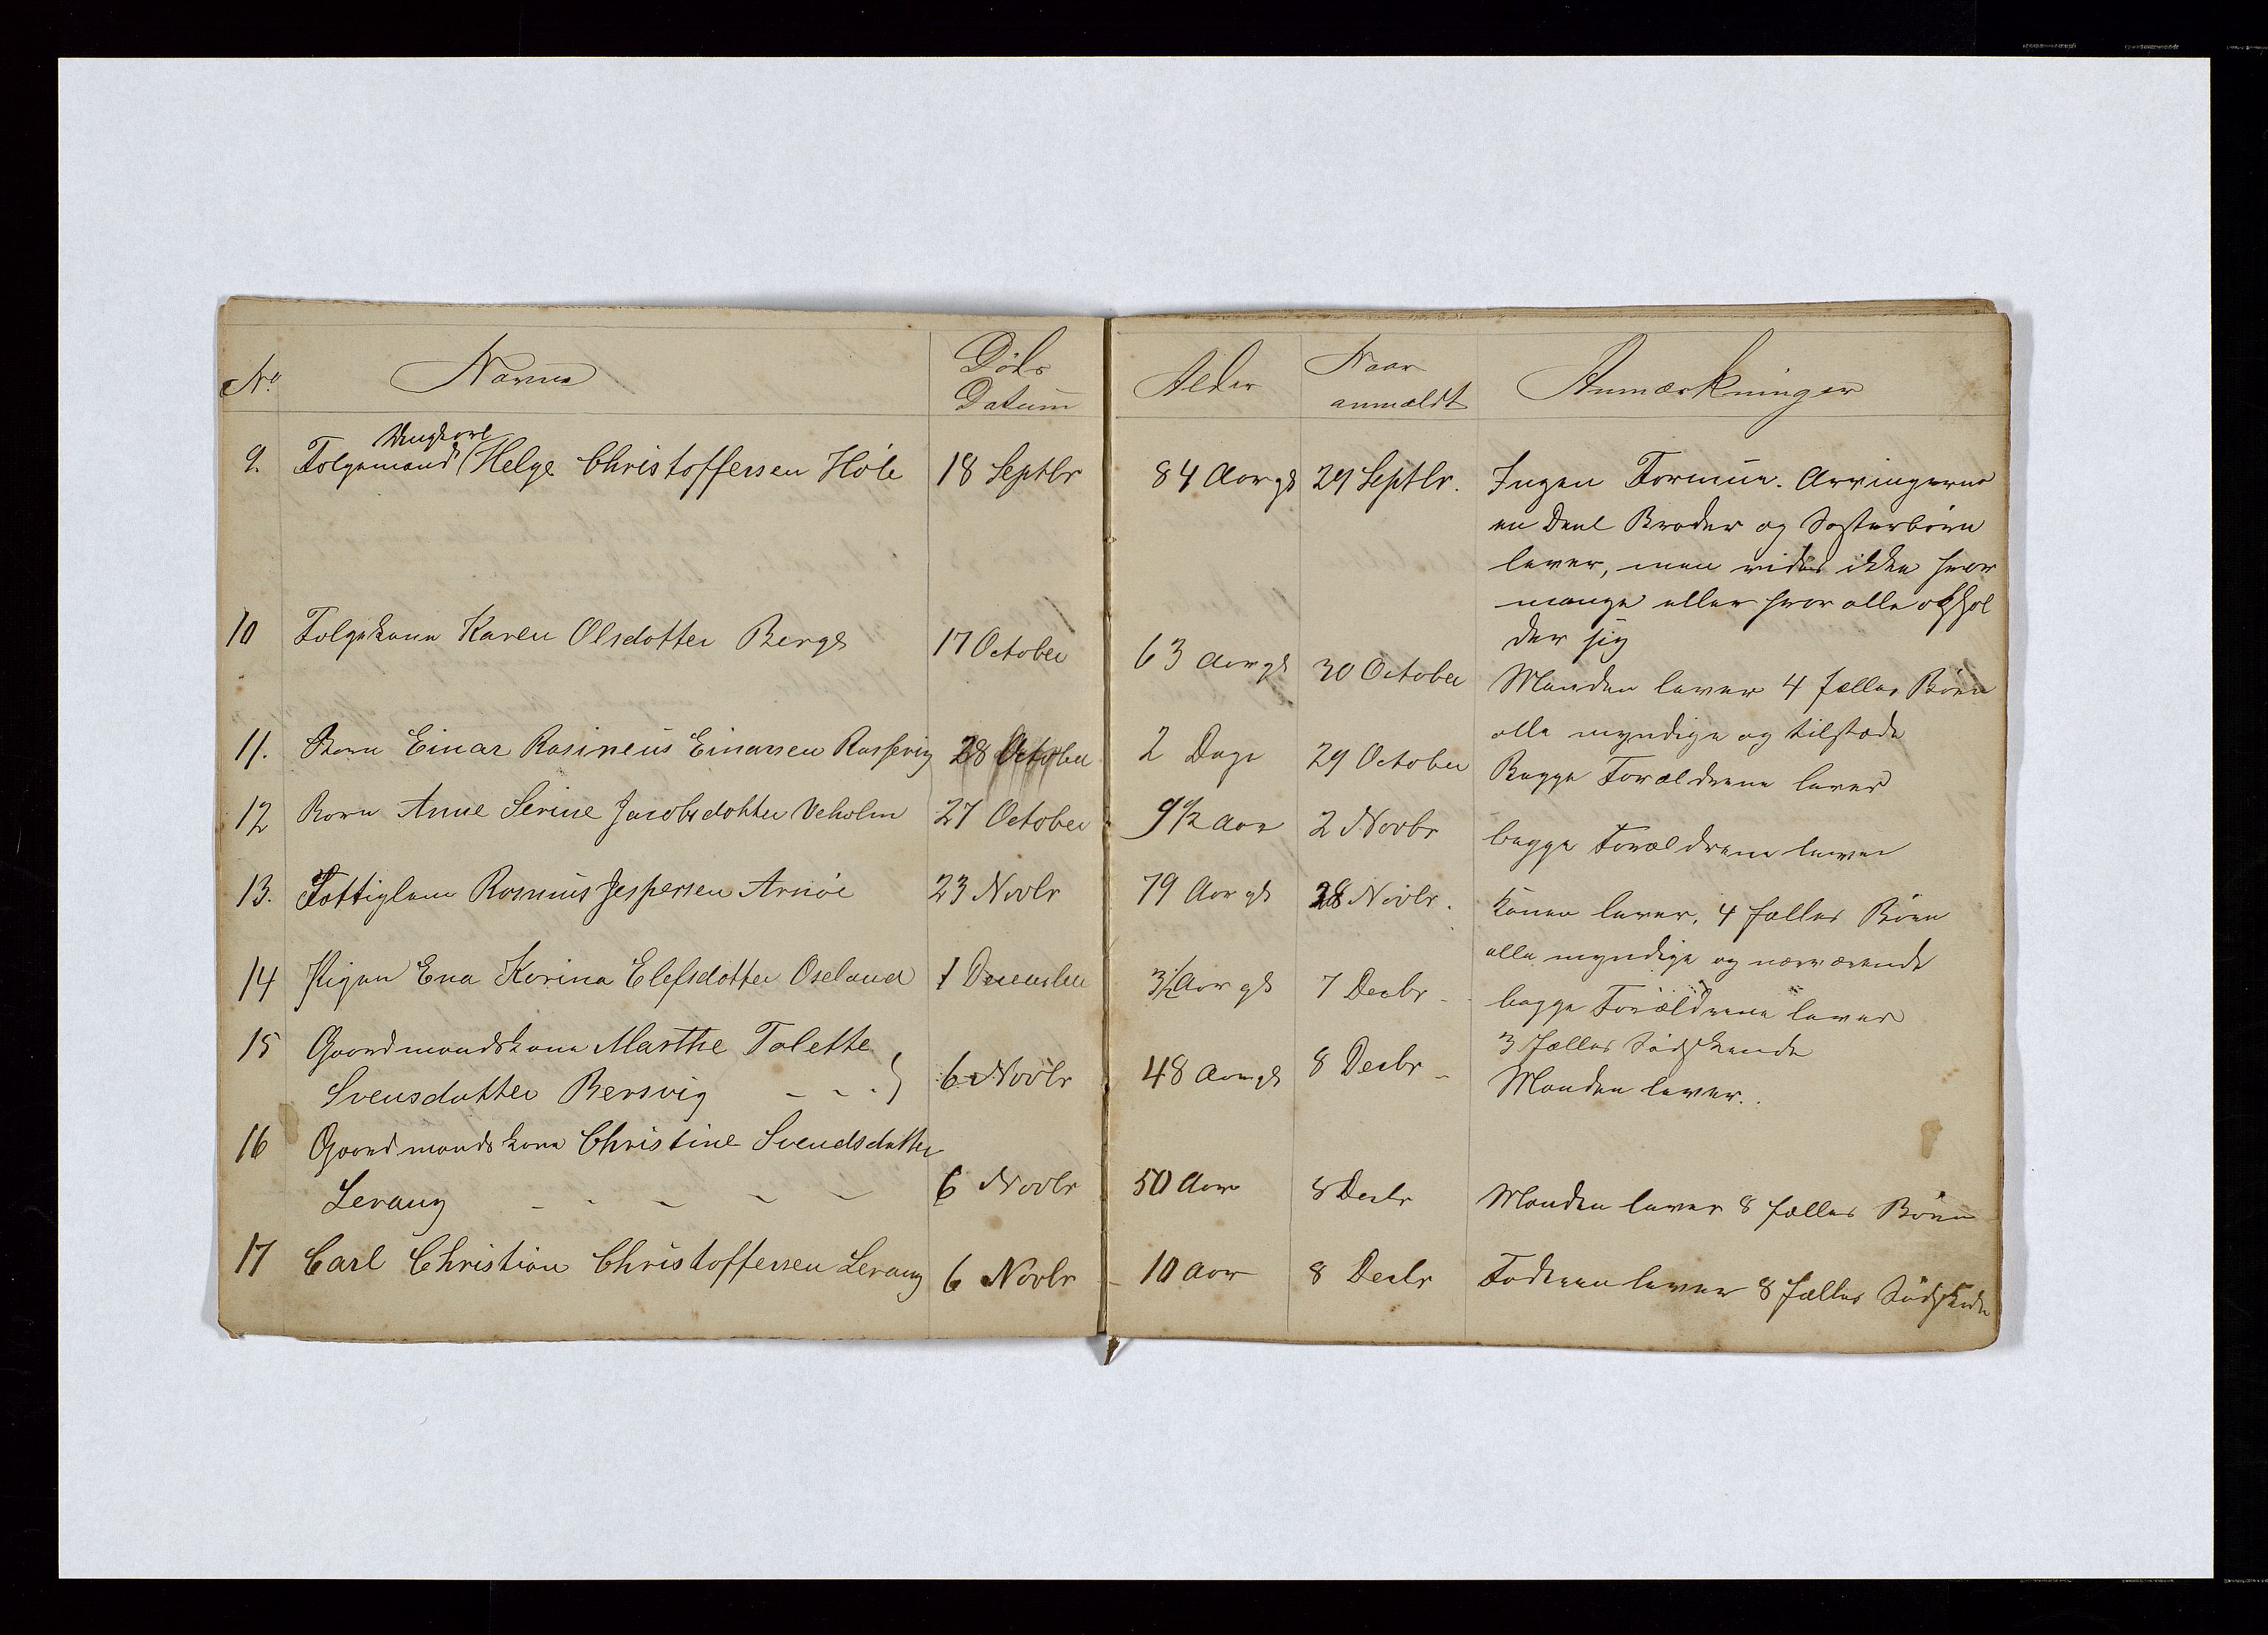 No. Navne Døds Datum Alder Naar anmældt Anmærkninger
Ungkarl
9. Folgemand (Helge Christoffersen Höle 18 Septbr 84 Aar gl 29 Septbr. Ingen Formue. Arvingerne
en Deel Broder og Søsterbörn
lever, men vides ikke hvor
mange eller hvor alle ophol
der sig
10 Folgekone Karen Olsdotter Berge 17 October 63 Aar gl 30 October Manden lever 4 fælles Börn
alle myndige og tilstæde
11. Barn Einar Rasineus Einarsen Rossevig 28 October 2 Dage 29 October Begge Forældrene lever
12 Barn Anne Serine Jacobsdotter Veholm 27 October 9 1/2 Aar 2 Novbr begge Forældrene lever
13. Fattiglem Rasmus Jespersen Arnöe 23 Novbr 79 Aar gl 28 Novbr. Konen lever, 4 fælles Börn
alle myndige og nærværende
14 Pigen Ena Korina Elefsdotter Oseland 1 December 3 1/2 Aar gl 7 Decbr - begge Forældrene lever
3 fælles Södskende
15 Gaardmandskone Marthe Tolette
Svensdatter Bersvig - - - } 6 Novbr 48 Aar gl 8 Decbr - Manden lever..
16 Gaardmandskone Christine Svendsdatter
Levang - - - - - 6 Novbr 50 Aar 8 Decbr Manden lever 8 fælles Börn
17 Carl Christian Christoffersen Levang 6 Novbr - 10 Aar 8 Decbr Faderen lever 8 fælles Södskende